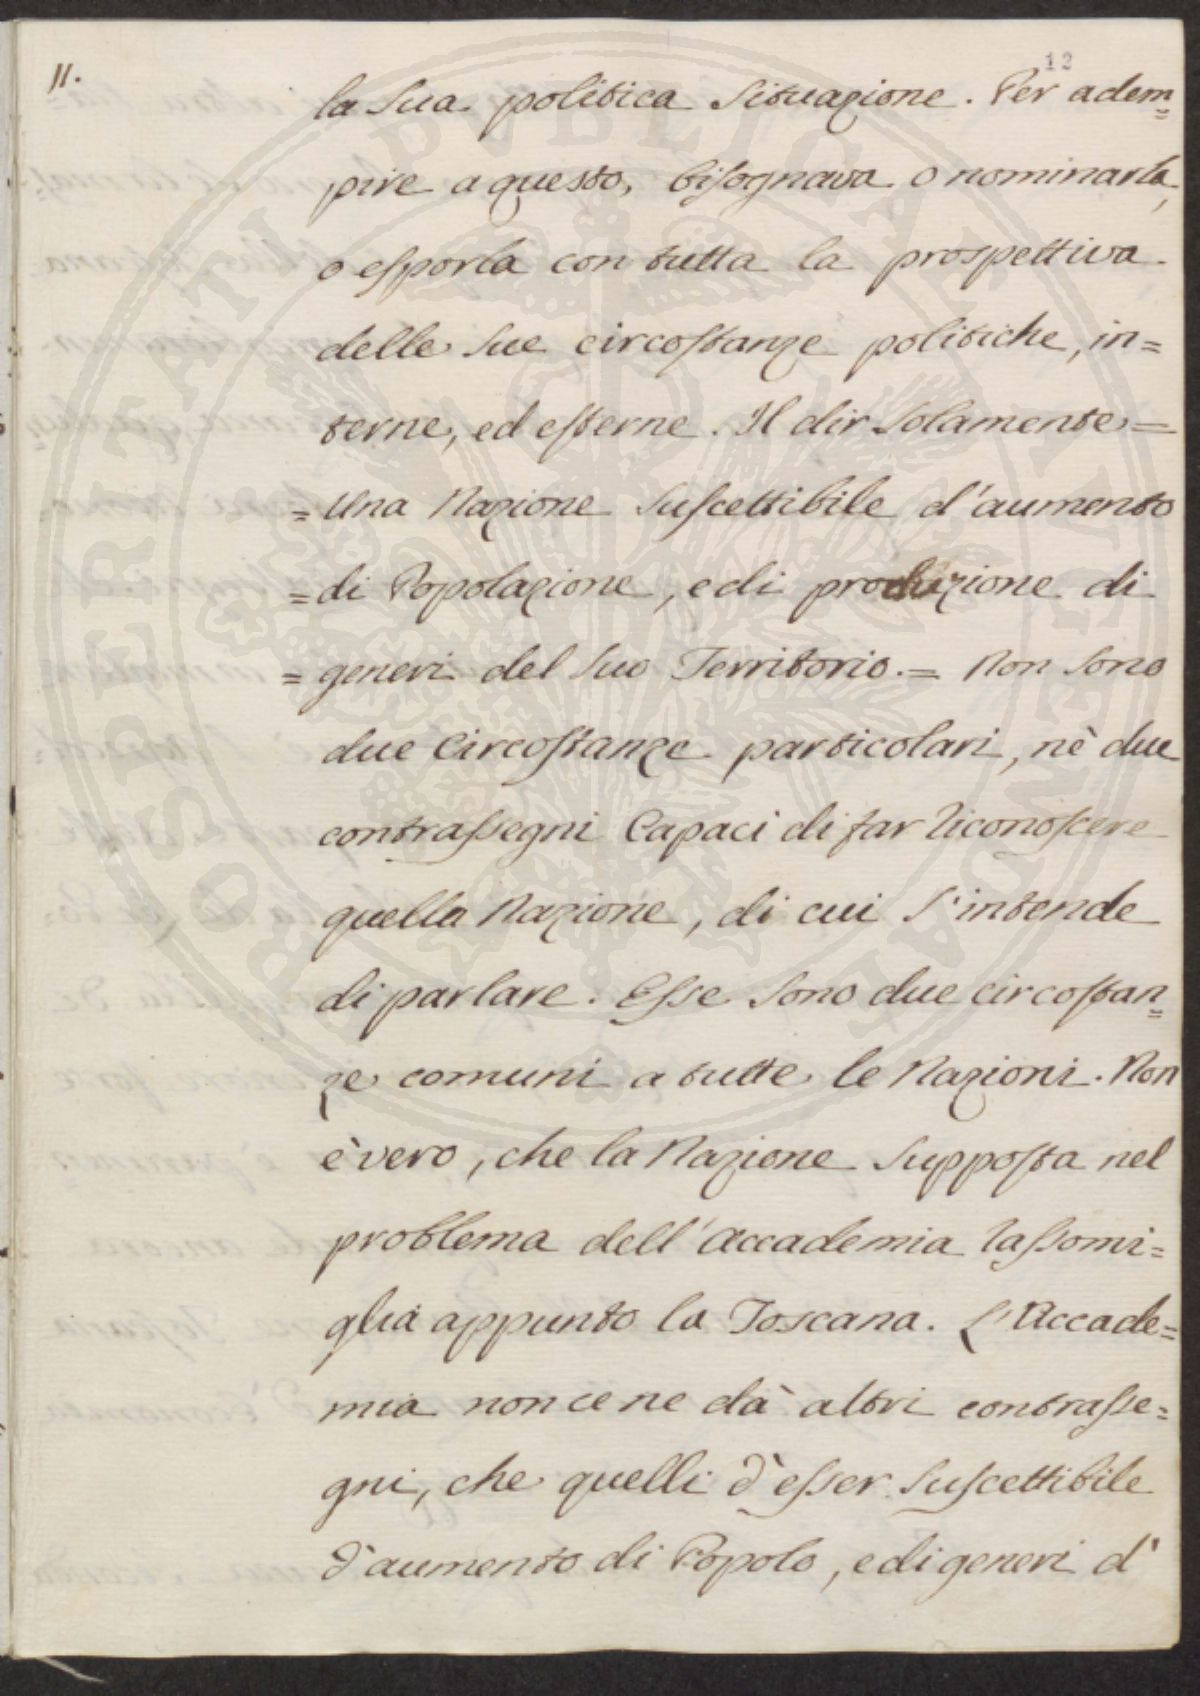 11.
12
la Sua politica Situazione. Per adem=
pire a questo, bisognava o nominarla,
o esporla con tutta la prospettiva
delle Sue circostanze politiche, in=
terne, ed esterne. Il dir Solamente =
= Una Nazione Suscettibile d'aumento
= di Popolazione, e di produzione di
= generi del Suo Territorio. = Non Sono
due Circostanze particolari, nè due
contrassegni Capaci di far riconoscere
quella Nazione, di cui S'intende
di parlare. Esse Sono due circostan=
ze comuni a tutte le Nazioni. Non
è vero, che la Nazione Supposta nel
problema dell'Accademia rassomi=
glia appunto la Toscana. L'Accade=
mia non ce ne dà altri contrasse=
gni, che quelli d'esser Suscettibile
d'aumento di Popolo, e di generi d'
PROSPERITATI PVBLICAE AVGENDAE